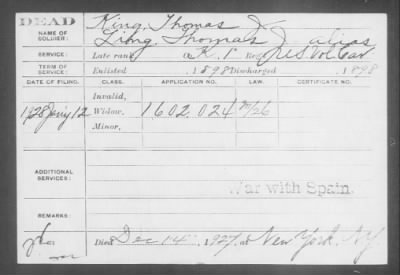 DEAD
NAME OF SOLDIER: King, Thomas J.
Thomas J. alias
SERVICE: Late rank K, 1 Reg't U S Vol Cav
TERM OF SERVICE: Enlisted , 1898 Discharged , 1898
DATE OF FILING. CLASS. APPLICATION NO. LAW. CERTIFICATE NO.
Invalid,
1928 Jan'y 12 Widow, 1602,024
Minor,
ADDITIONAL SERVICES:
War with Spain.
REMARKS:
Died Dec 14", 1927, at New York, N.Y.